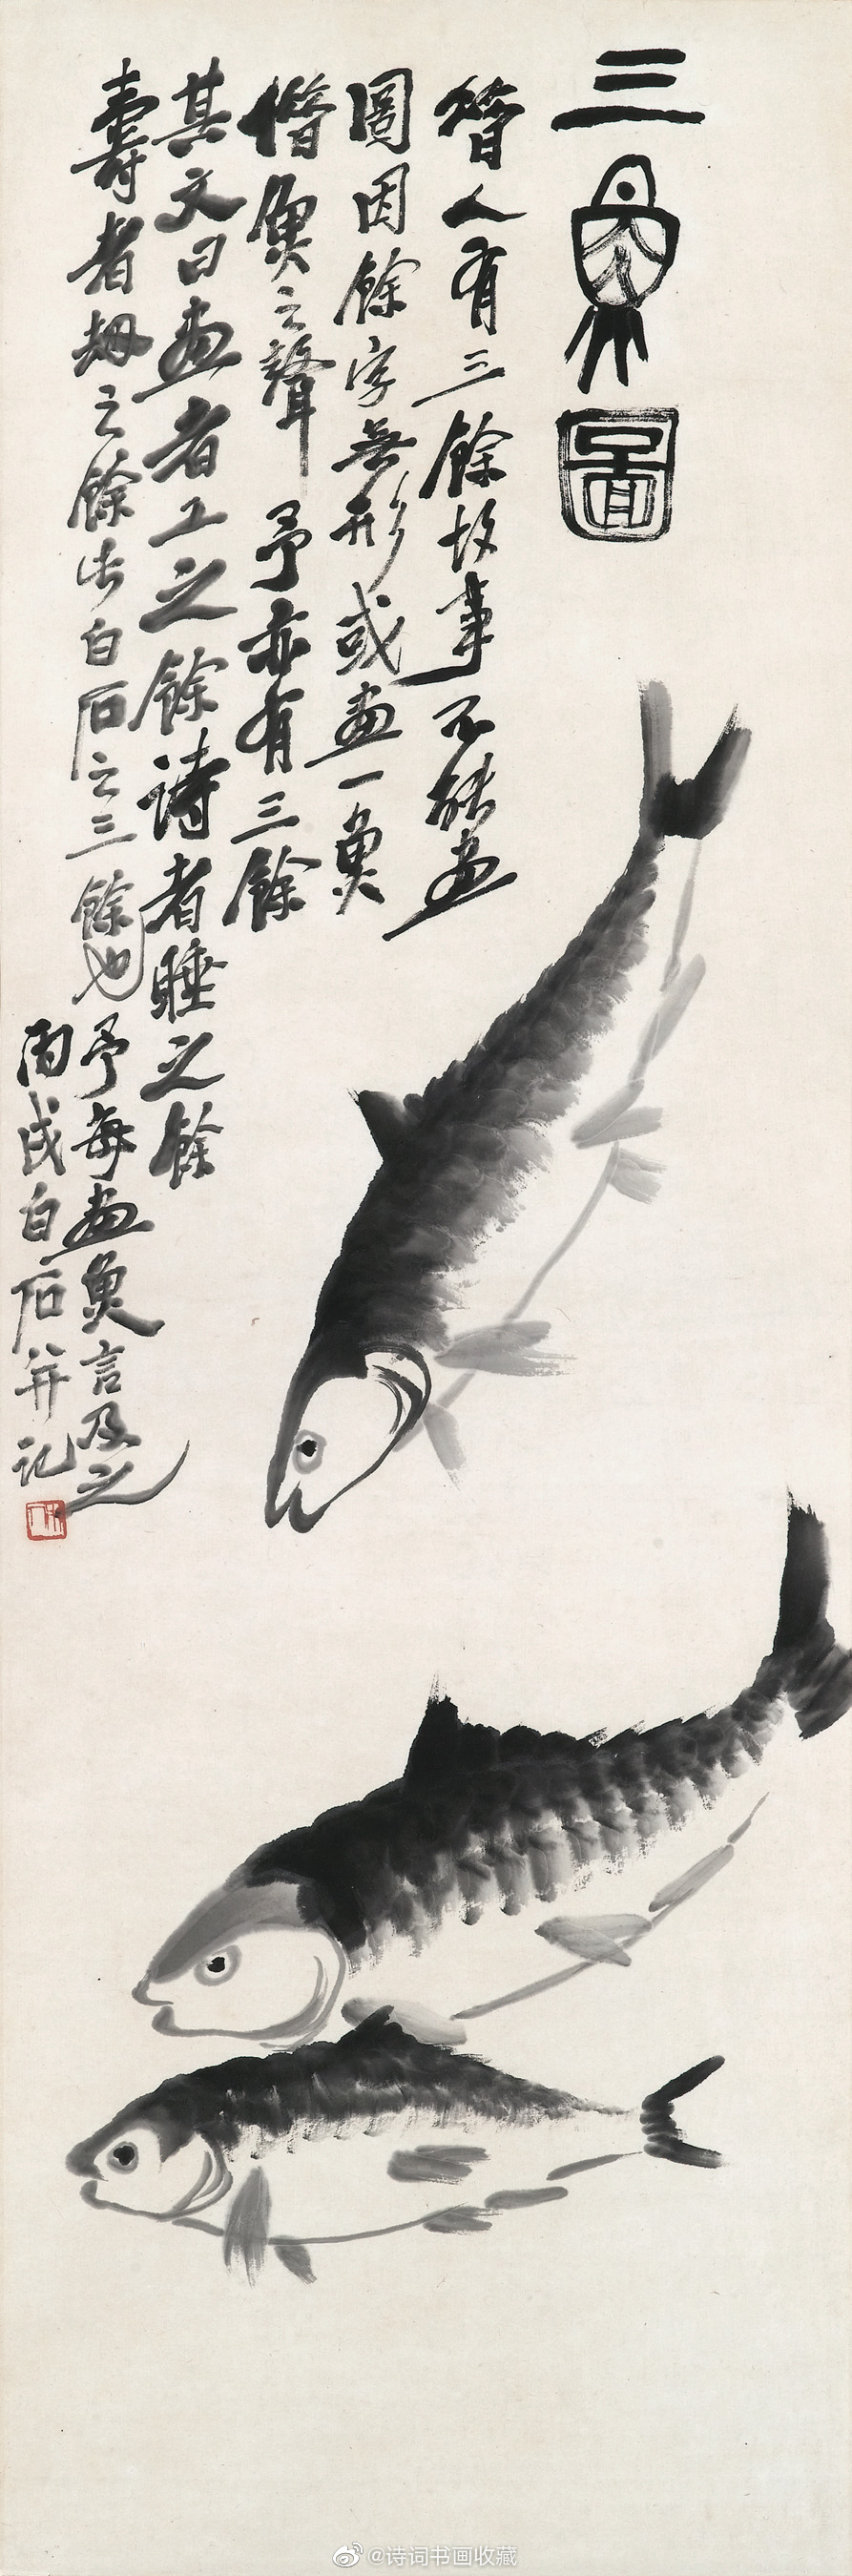 三魚圖
昔人有三餘故事不能畫
圖因餘字無形或畫一魚
借魚之聲 予亦有三餘
其文曰畫者工之餘詩者睡之餘
壽者劫之餘此白石之三餘也予每畫魚言及之
丙戌白石并記
@诗词书画收藏